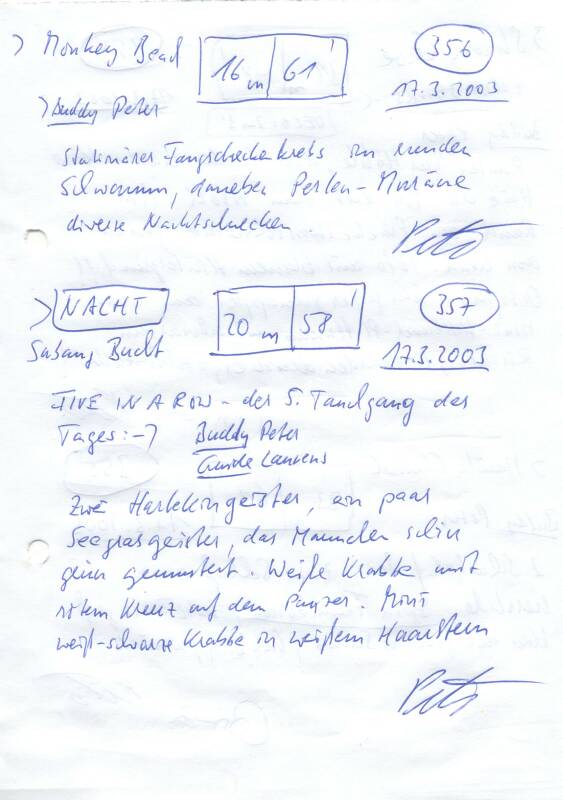 > Monkey Bead 16 m 61' 356
17.3.2003
> Buddy Peter
Stationärer Fangschreckenkrebs im runden
Schwamm, daneben Perlen-Muräne
diverse Nachtschnecken.
Peter
> NACHT 20 m 58' 357
Sabang Bucht 17.3.2003
FIVE IN A ROW - der 5. Tauchgang des
Tages :-) Buddy Peter
Guide Laurens
Zwei Harlekingeister, ein paar
Seegrasgeister, das Männchen schön
grün gemustert. Weiße Krabbe mit
rotem Kreuz auf dem Panzer. Mini
weiß-schwarze Krabbe in weißem Haarstern
Peter